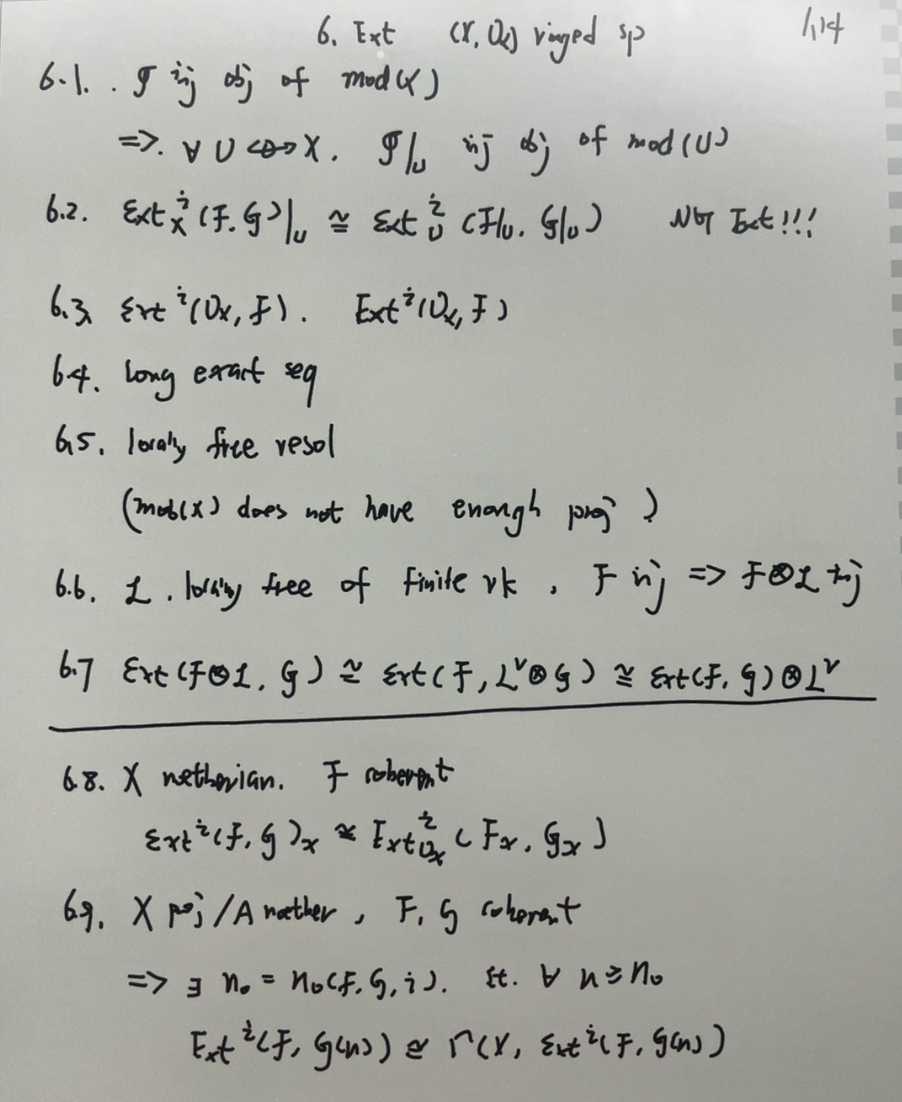 6. Ext (X, O_X) ringed sp 1,14
6.1. . ℐ inj obj of mod(X)
=>. ∀ U ↪ X. ℐ|_U inj obj of mod(U)
6.2. ℰxt^i_X (ℱ, 𝒢)|_U ≅ ℰxt^i_U (ℱ|_U, 𝒢|_U) Not Ext!!!
6.3, ℰxt^i (O_X, ℱ). Ext^i (O_X, ℱ)
6.4. long exact seq
6.5. locally free resol
(mod(X) does not have enough proj)
6.6. ℒ. locally free of finite rk, ℱ inj => ℱ⊗ℒ inj
6.7 ℰxt(ℱ⊗ℒ, 𝒢) ≅ ℰxt(ℱ, ℒ^∨⊗𝒢) ≅ ℰxt(ℱ, 𝒢)⊗ℒ^∨
6.8. X netherian. ℱ coherent
ℰxt^i(ℱ, 𝒢)_x ≅ Ext^i_{O_x} (ℱ_x, 𝒢_x)
6.9. X proj/A noether, ℱ, 𝒢 coherent
=> ∃ n_0 = n_0(ℱ, 𝒢, i). st. ∀ n ≥ n_0
Ext^i(ℱ, 𝒢(n)) ≅ Γ(X, ℰxt^i(ℱ, 𝒢(n))